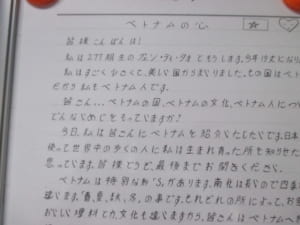 ベトナムの心
皆様こんばんは!
私は277期生のファン・ティ・タオともうします。今年19才になり
私はすごく小さくて、美しい国からまいりました。その国はベト
だから私もベトナム人です。
皆さん...ベトナムの国、ベトナムの文化、ベトナム人につ
どんなイメージをもっていますか?
今日、私は皆さんにベトナムを紹介したいです。日本
使って世界中の多くの人に私は生まれ育った所を知らせた
思っています。皆様どうぞ、最後までお聞きください。
ベトナムは特別な形"S"があります。南北は長いので四季
違います。「春、夏、秋、冬」の事です。それぞれの所によって、お
おいしい理材とか、文化も違いますから、皆さんはベトナムへ